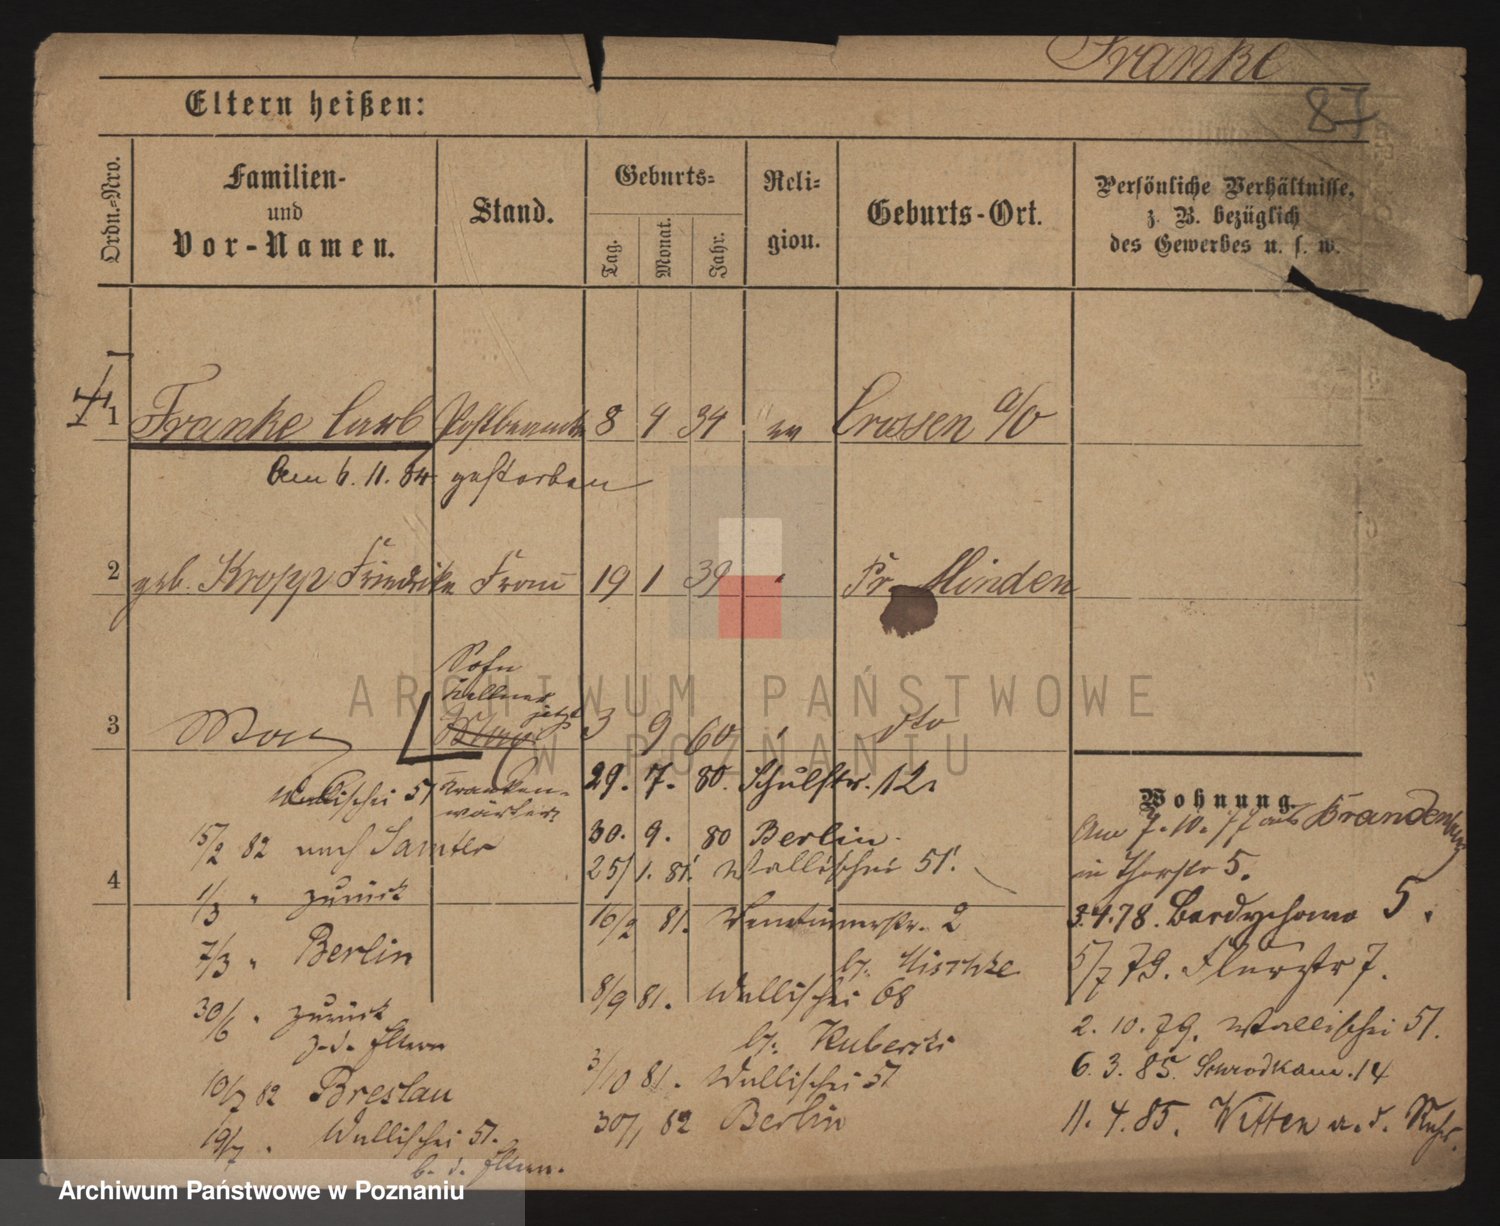 Franke
87
Eltern heißen:
Ordn.-Nro.
Familien-
und
Vor-Namen.
Stand.
Geburts-
Tag.
Monat.
Jahr.
Reli-
gion.
Geburts-Ort.
Persönliche Verhältnisse,
z. B. bezüglich
des Gewerbes u. s. w.
1 Franke Carl Postbeamter 8 4 34 ev Crossen a/O
Am 6. 11. 84 gestorben
2 geb. Kropp Friedrike Frau 19 1 39 " Pr. Minden
Sohn
Kellner
jetzt
3 Max 3 9 60 " dto
Kranken-
wärter
Wallischei 51
15/2 82 nach Samter
1/3 " zurück
4
7/3 " Berlin
30/6 " zurück
z. d. Eltern
10/7 82 Breslau
19/7 " Wallischei 51.
b. d. Eltern.
29. 7. 80. Schulstr. 12.
30. 9. 80 Berlin.
25/1. 81. Wallischei 51.
16/2 81. 2
by. Mischke
8/9 81. Wallischei 68
by. Kuberski
3/10 81. Wallischei 51
30/1 82 Berlin
Wohnung.
Am 7. 10. 77 aus Brandenburg
in Thorstr 5.
3.4.78. Bardychowo 5.
5/7 79. Flurstr 7.
2. 10. 79. Wallischei 51.
6. 3. 85. Schrodkam. 14
11. 4. 85. Witten a. d. Ruhr.
ARCHIWUM PAŃSTWOWE
W POZNANIU
Archiwum Państwowe w Poznaniu